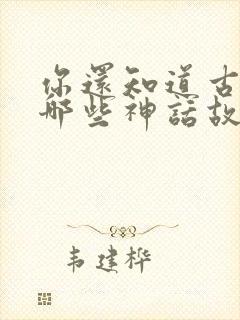 你還知道古
哪些神話故
韦建桦